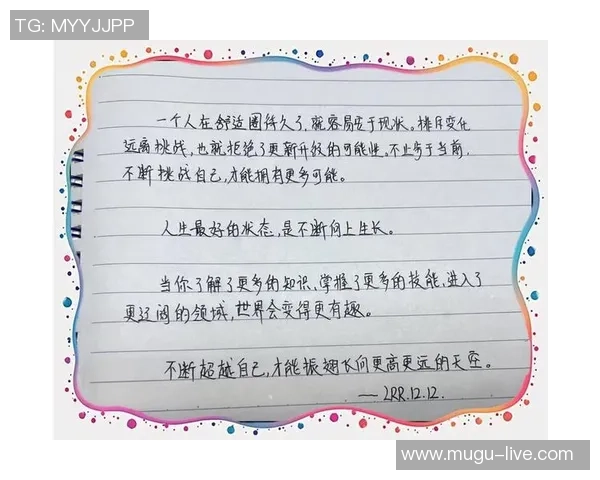 TG: MYYJJPP
一个人在舒适圈待久了,就容易安于现状。排斥变化
远离挑战,也就拒绝了更新升级的可能性。不止步于当前,
不断挑战自己,才能拥有更多可能。
人生最好的状态,是不断向上生长。
当你了解了更多的知识,掌握了更多的技能,进入了
更辽阔的领域,世界会变得更有趣。
不断超越自己,才能振翅飞向更高更远的天空。
——LRR.12.12.
www.mugu-live.com